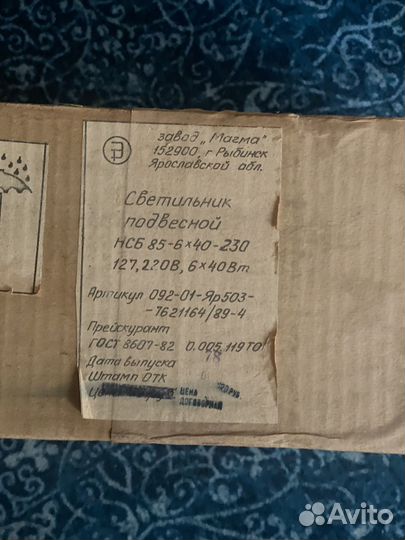 завод „Магма"
152900, г Рыбинск
Ярославской обл.
Светильник
подвесной
НСБ 85-6×40-230
127,220В, 6×40Вт
Артикул 092-01-Яр503-
-7621164/89-4
Прейскурант
ГОСТ 8607-82 0.005.119ТО
Дата выпуска
Штамп ОТК
ЦЕНА
ДОГОВОРНАЯ
Avito